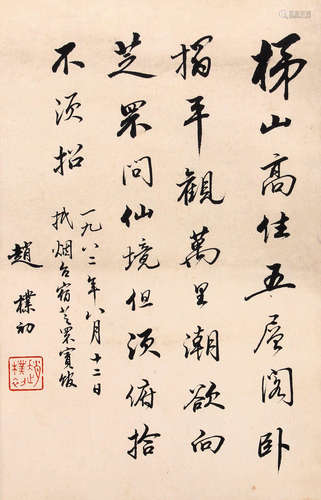 梯山高住五层阁卧
榻平觀萬里潮欲向
芝罘问仙境但须俯拾
不须招
一九八二年八月十二日
抵烟台宿芝罘賓馆
趙樸初
趙樸初